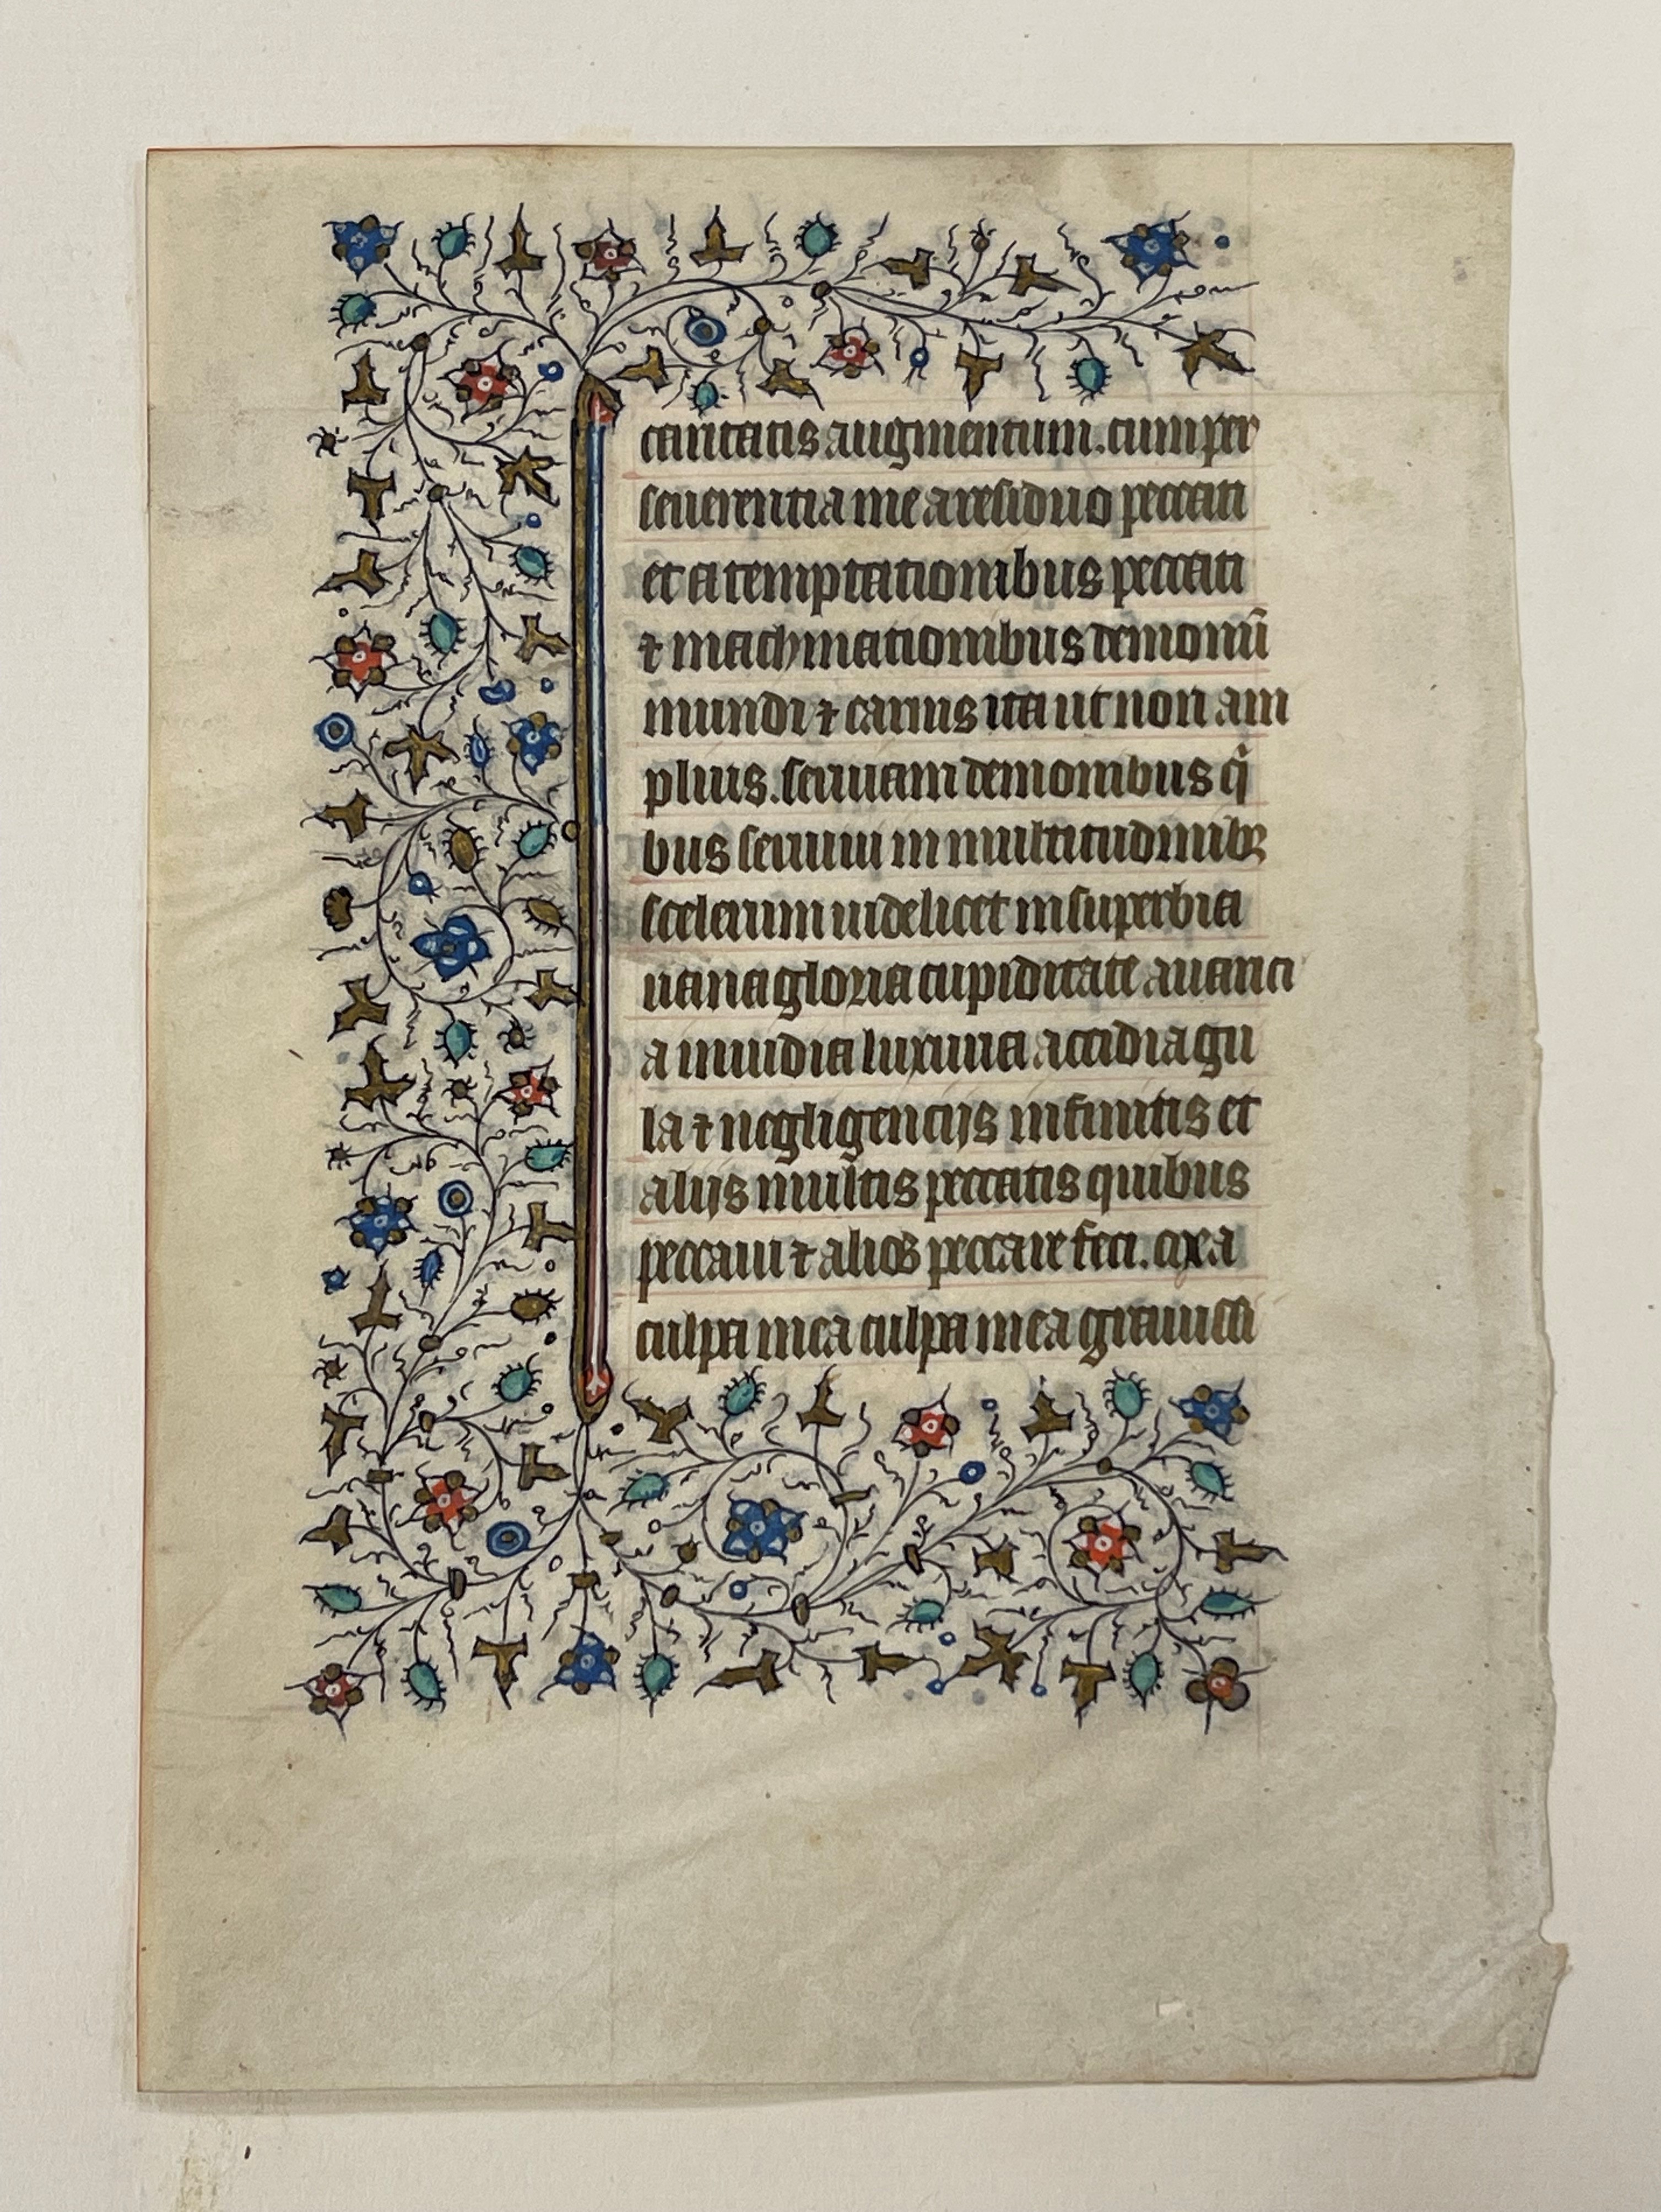 caritatis augmentum. cum per
seuerentia me a residuo peccati
et a temptationibus peccati
⁊ machinationibus demonū
mundi ⁊ carnis ita ut non am
plius. seruiam demonibus qͥ
bus seruiui in multitudinibꝫ
scelerum uidelicet in superbia
uana gloria cupiditate auarici
a inuidia luxuria accidia gu
la ⁊ negligencijs infinitis et
alijs multis peccatis quibus
peccaui ⁊ alios peccare feci. ex ea
culpa mea culpa mea grauissi